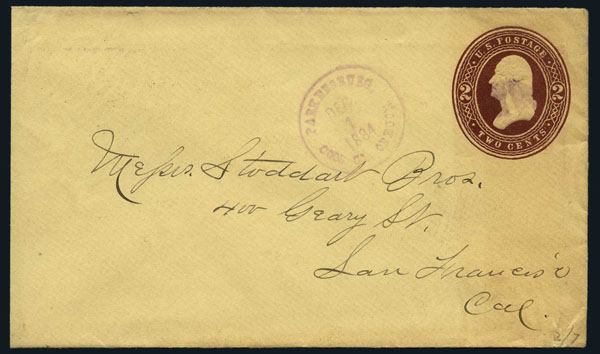 U.S. POSTAGE
2 2
TWO CENTS
DEC
1
1884
Messrs. Stoddart Bros.
400 Geary St.
San Francisco
Cal.
2/7